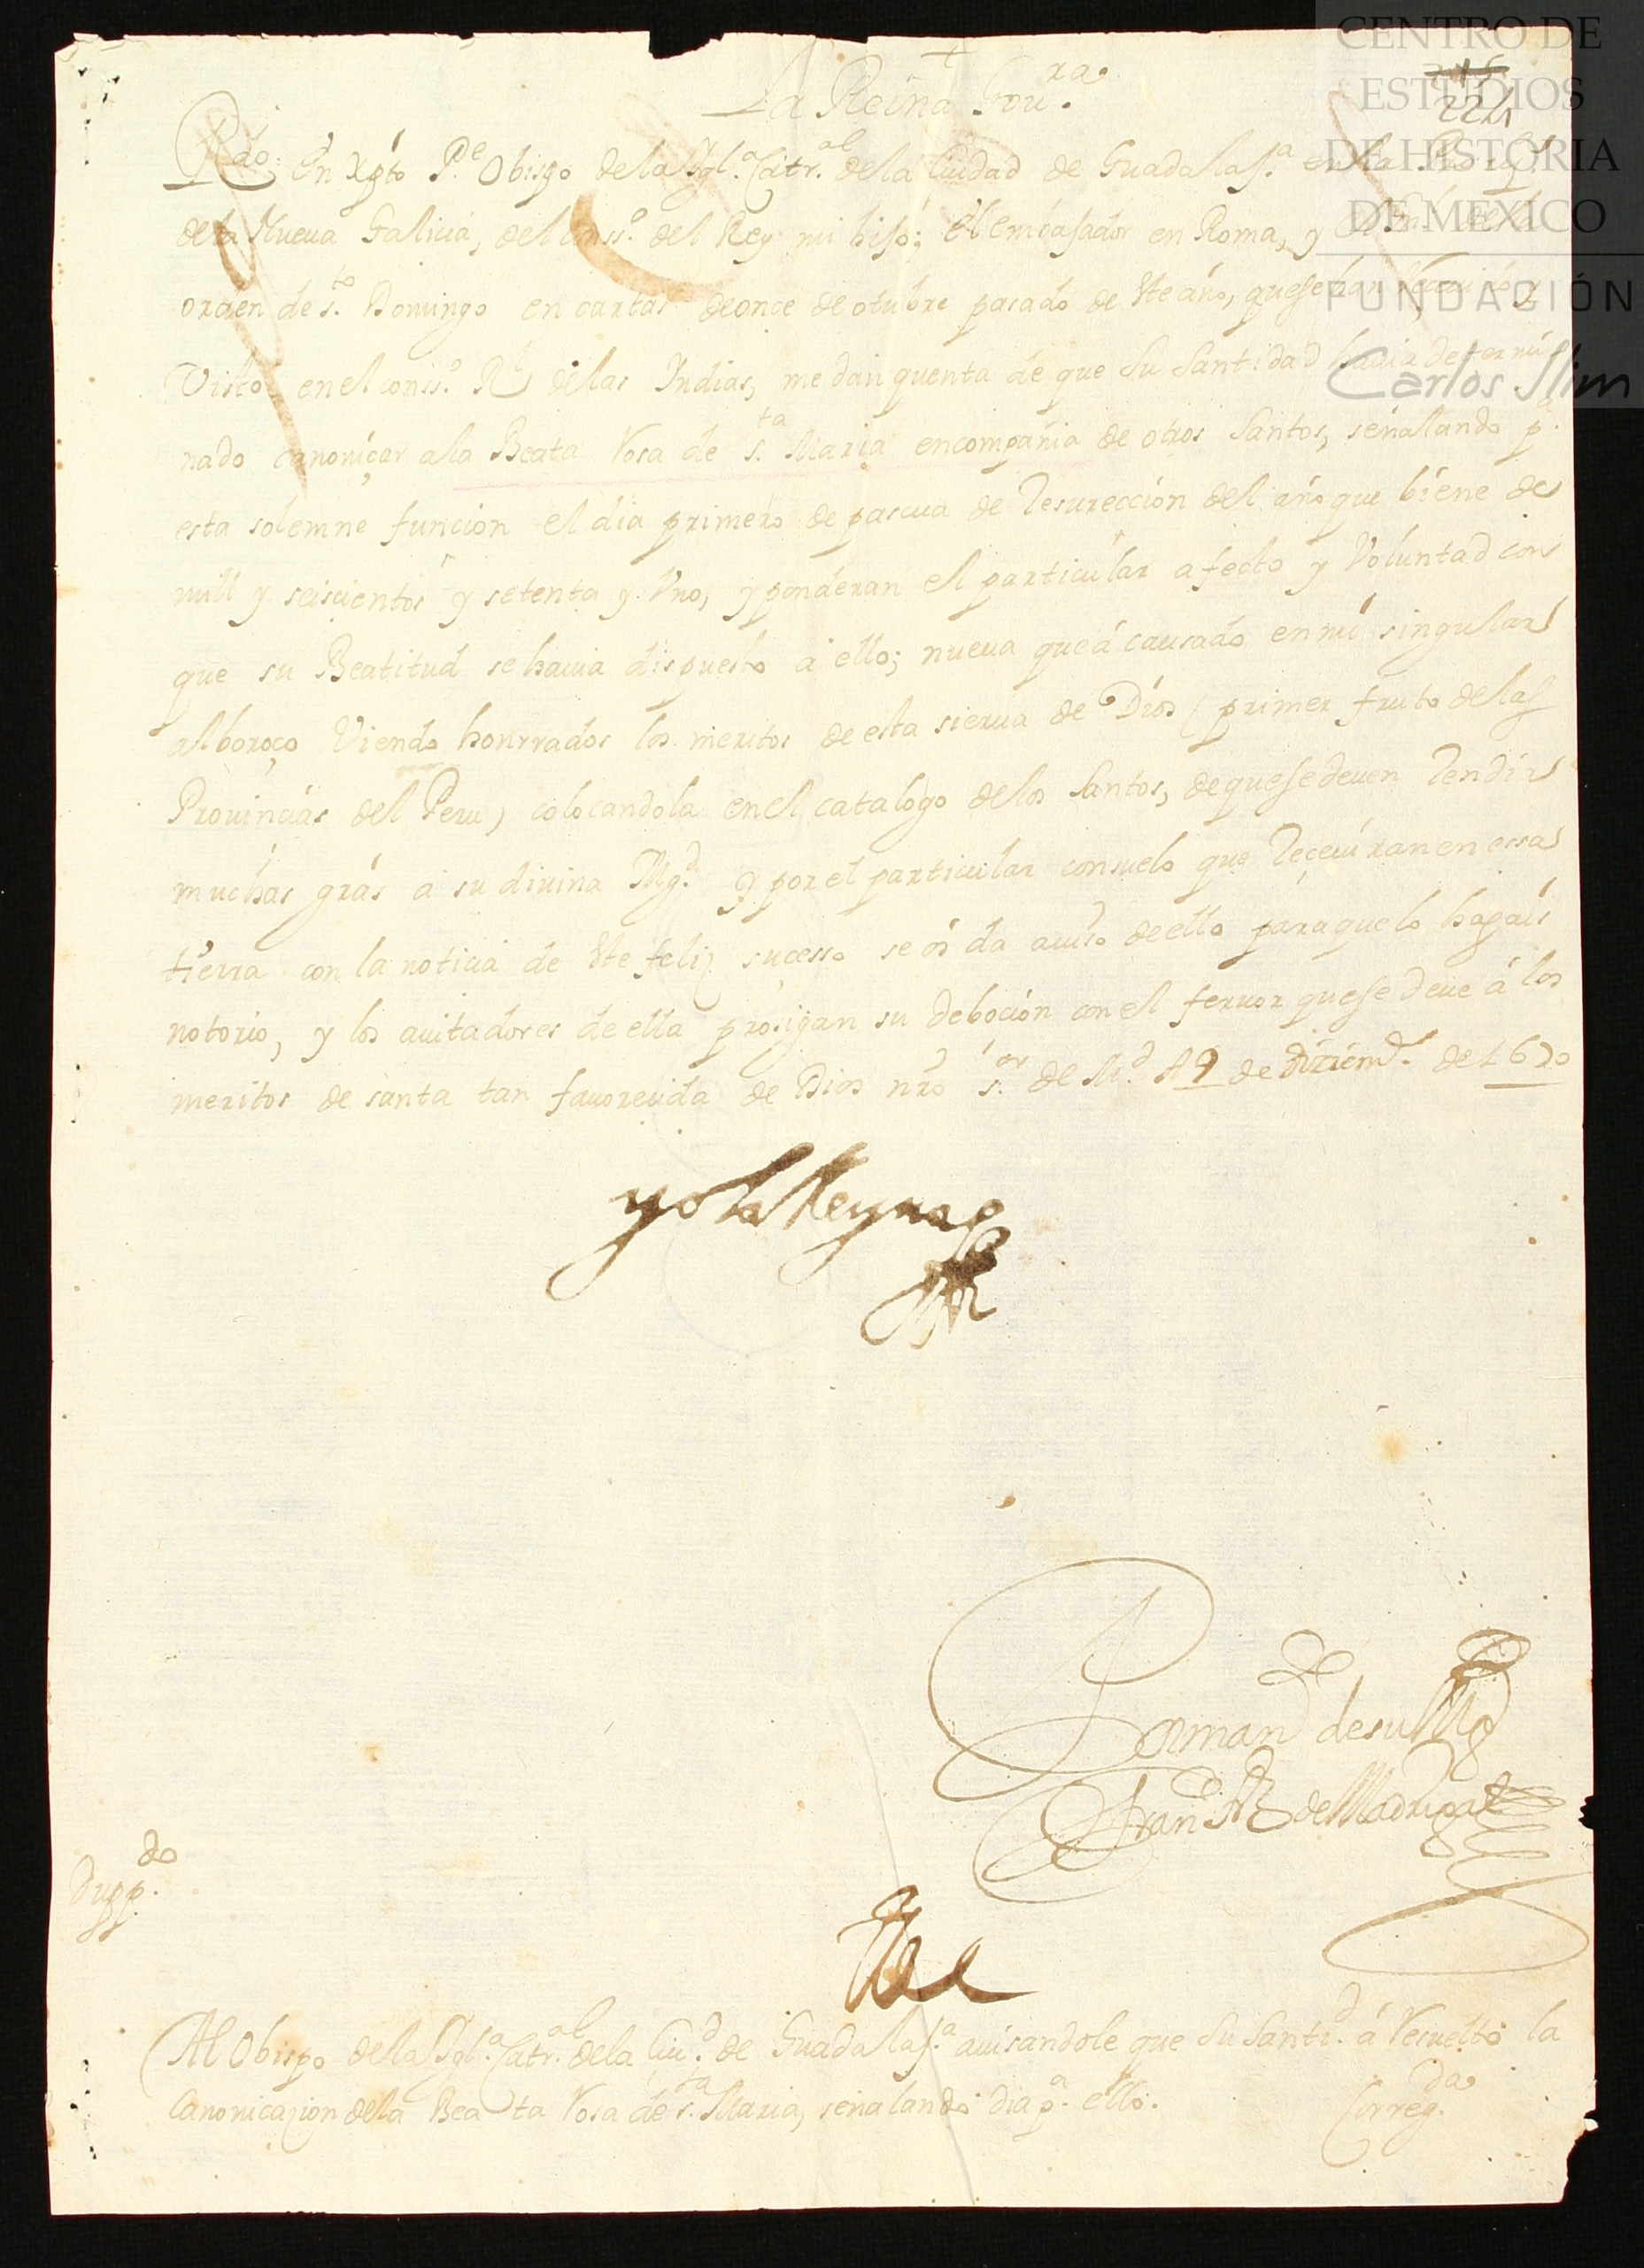 CENTRO DE
ESTUDIOS
DE HISTORIA
DE MÉXICO
FUNDACIÓN
Carlos Slim
224
La Reina Gou.ra
Rdo en Xpto Pe Obispo de la Igl.a Catr.al de la Ciudad de Guadalax.a en la
de la Nueua Galicia, del Conss.o del Rey mi hijo; el embajador en Roma, y
orden de s.to Domingo en cartas de once de otubre pasado de este año, que se han reciuido y
Visto en el conss.o Rl de las Indias, me dan quenta de que Su Santidad hauia determi
nado canoniçar a la Beata Rosa de s.ta Maria en compañia de otros Santos, señalando p.a
esta solemne funcion el dia primero de pascua de Resureccion del año que biene de
mill y seiscientos y setenta y Vno, y ponderan el particular afecto y Voluntad con
que su Beatitud se hauia dispuesto a ello; nueua que á causado en mi singular
alboroço Viendo honrrados los meritos de esta sierua de Dios (primer fruto de las
Prouincias del Peru) colocandola en el catalogo de los Santos, de que se deuen rendir
muchas gras a su diuina Mg.d y por el particular consuelo que reçeuiran en essa
tierra con la noticia de este feliz sucesso se os da auiso de ello para que lo hagais
notorio, y los auitadores de ella prosigan su deboción con el feruor que se deue á los
meritos de santa tan fauorecida de Dios nro s.or de M.d A 9 de Diziem.e de 1670
yo la Reyna
Por mand.do de su Mg.d
Fran.co Frz de Madrigal
Dupp.do
Al Obispo de la Igl.a Catr.al de la Ciu.d de Guadalax.a auisandole que Su Santi.d á resuelto la
Canonicazion de la Beata Rosa de s.ta Maria, señalando dia p.a ello.
Correg.da